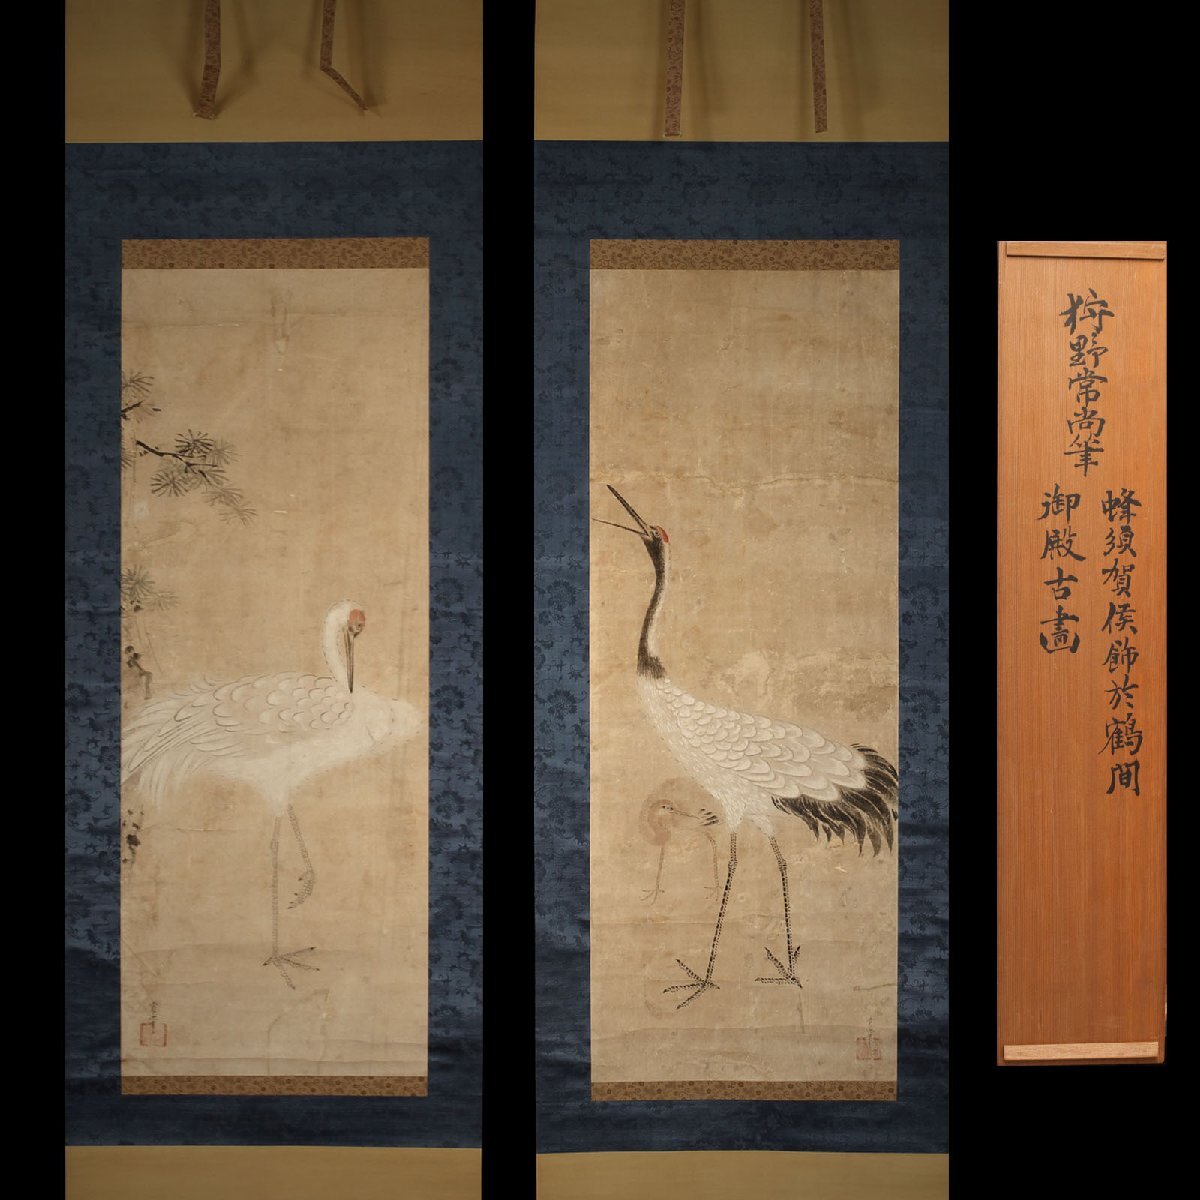 狩野常尚筆
蜂須賀侯飾於鶴間
御殿古畫